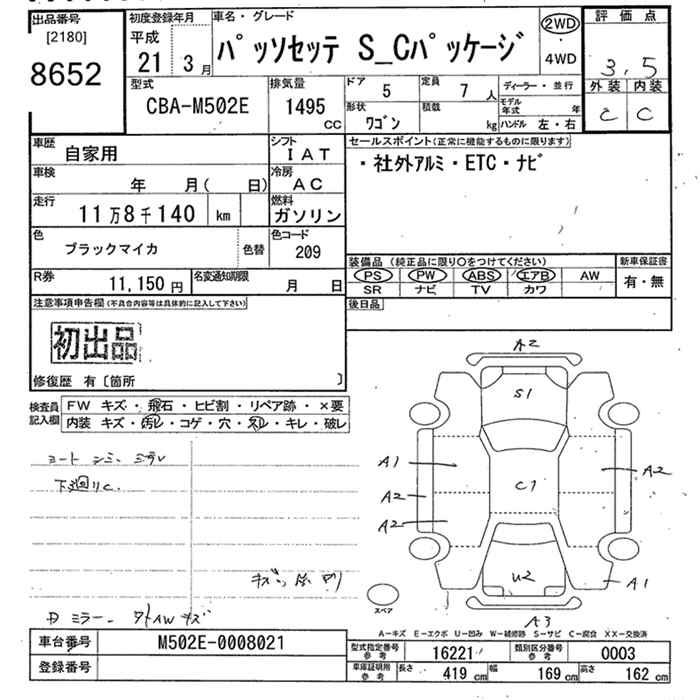 出品番号 初度登録年月 車名・グレード 評価点
[2180] 平成 パッソセッテ S_Cパッケージ 2WD・4WD 3.5
8652 21 3月 外装 内装
型式 排気量 ドア 5 定員 7人 ディーラー・並行 C C
CBA-M502E 1495 CC 形状 ワゴン 積載 kg モデル年式 年 ハンドル 左・右
車歴 自家用 シフト IAT セールスポイント(正常に機能するものに限ります)
車検 年 月( 日) 冷房 AC ・社外アルミ・ETC・ナビ
走行 11万8千140 km 燃料 ガソリン
色 ブラックマイカ 色替 色コード 209
装備品(純正品に限り○をつけてください) 新車保証書
R券 11,150円 名変通知期限 月 日 PS PW ABS エアB AW 有・無
SR ナビ TV カワ
注意事項申告欄(不具合内容等は具体的に記入して下さい) 後日品
初出品
修復歴 有〔箇所 〕
検査員記入欄 FW キズ・飛石・ヒビ割・リペア跡・×要
内装 キズ・汚れ・コゲ・穴・スレ・キレ・破レ
A2
S1
A1 A2
C1
A2
A2
下廻りC.
U2
A1
スペア
A3
A-キズ E-エクボ U-凹み W-補修跡 S-サビ C-腐食 XX-交換済
車台番号 M502E-0008021 型式指定番号 参考 16221 類別区分番号 参考 0003
登録番号 車庫証明用 参考 長さ 419 cm 幅 169 cm 高さ 162 cm